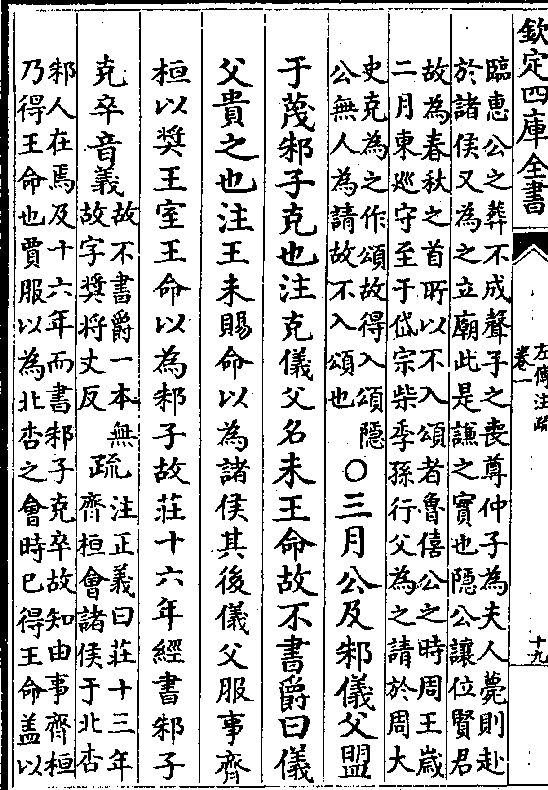 欽定四庫全書
左傳注疏
卷一
十九
臨惠公之葬不成聲子之喪尊仲子為夫人薨則赴
於諸侯又為之立廟此是謙之實也隱公讓位賢君
故為春秋之首所以不入頌者魯僖公之時周王歲
二月東廵守至于岱宗柴季孫行父為之請於周大
史克為之作頌故得入頌隱
公無人為請故不入頌也
○三月公及邾儀父盟
于蔑邾子克也注克儀父名未王命故不書爵曰儀
父貴之也注王未賜命以為諸侯其後儀父服事齊
桓以奬王室王命以為邾子故莊十六年經書邾子
克卒音義
故不書爵一本無
故字奬將丈反
疏
注正義曰莊十三年
齊桓會諸侯于北杏
邾人在焉及十六年而書邾子克卒故知由事齊桓
乃得王命也賈服以為北杏之會時已得王命盖以